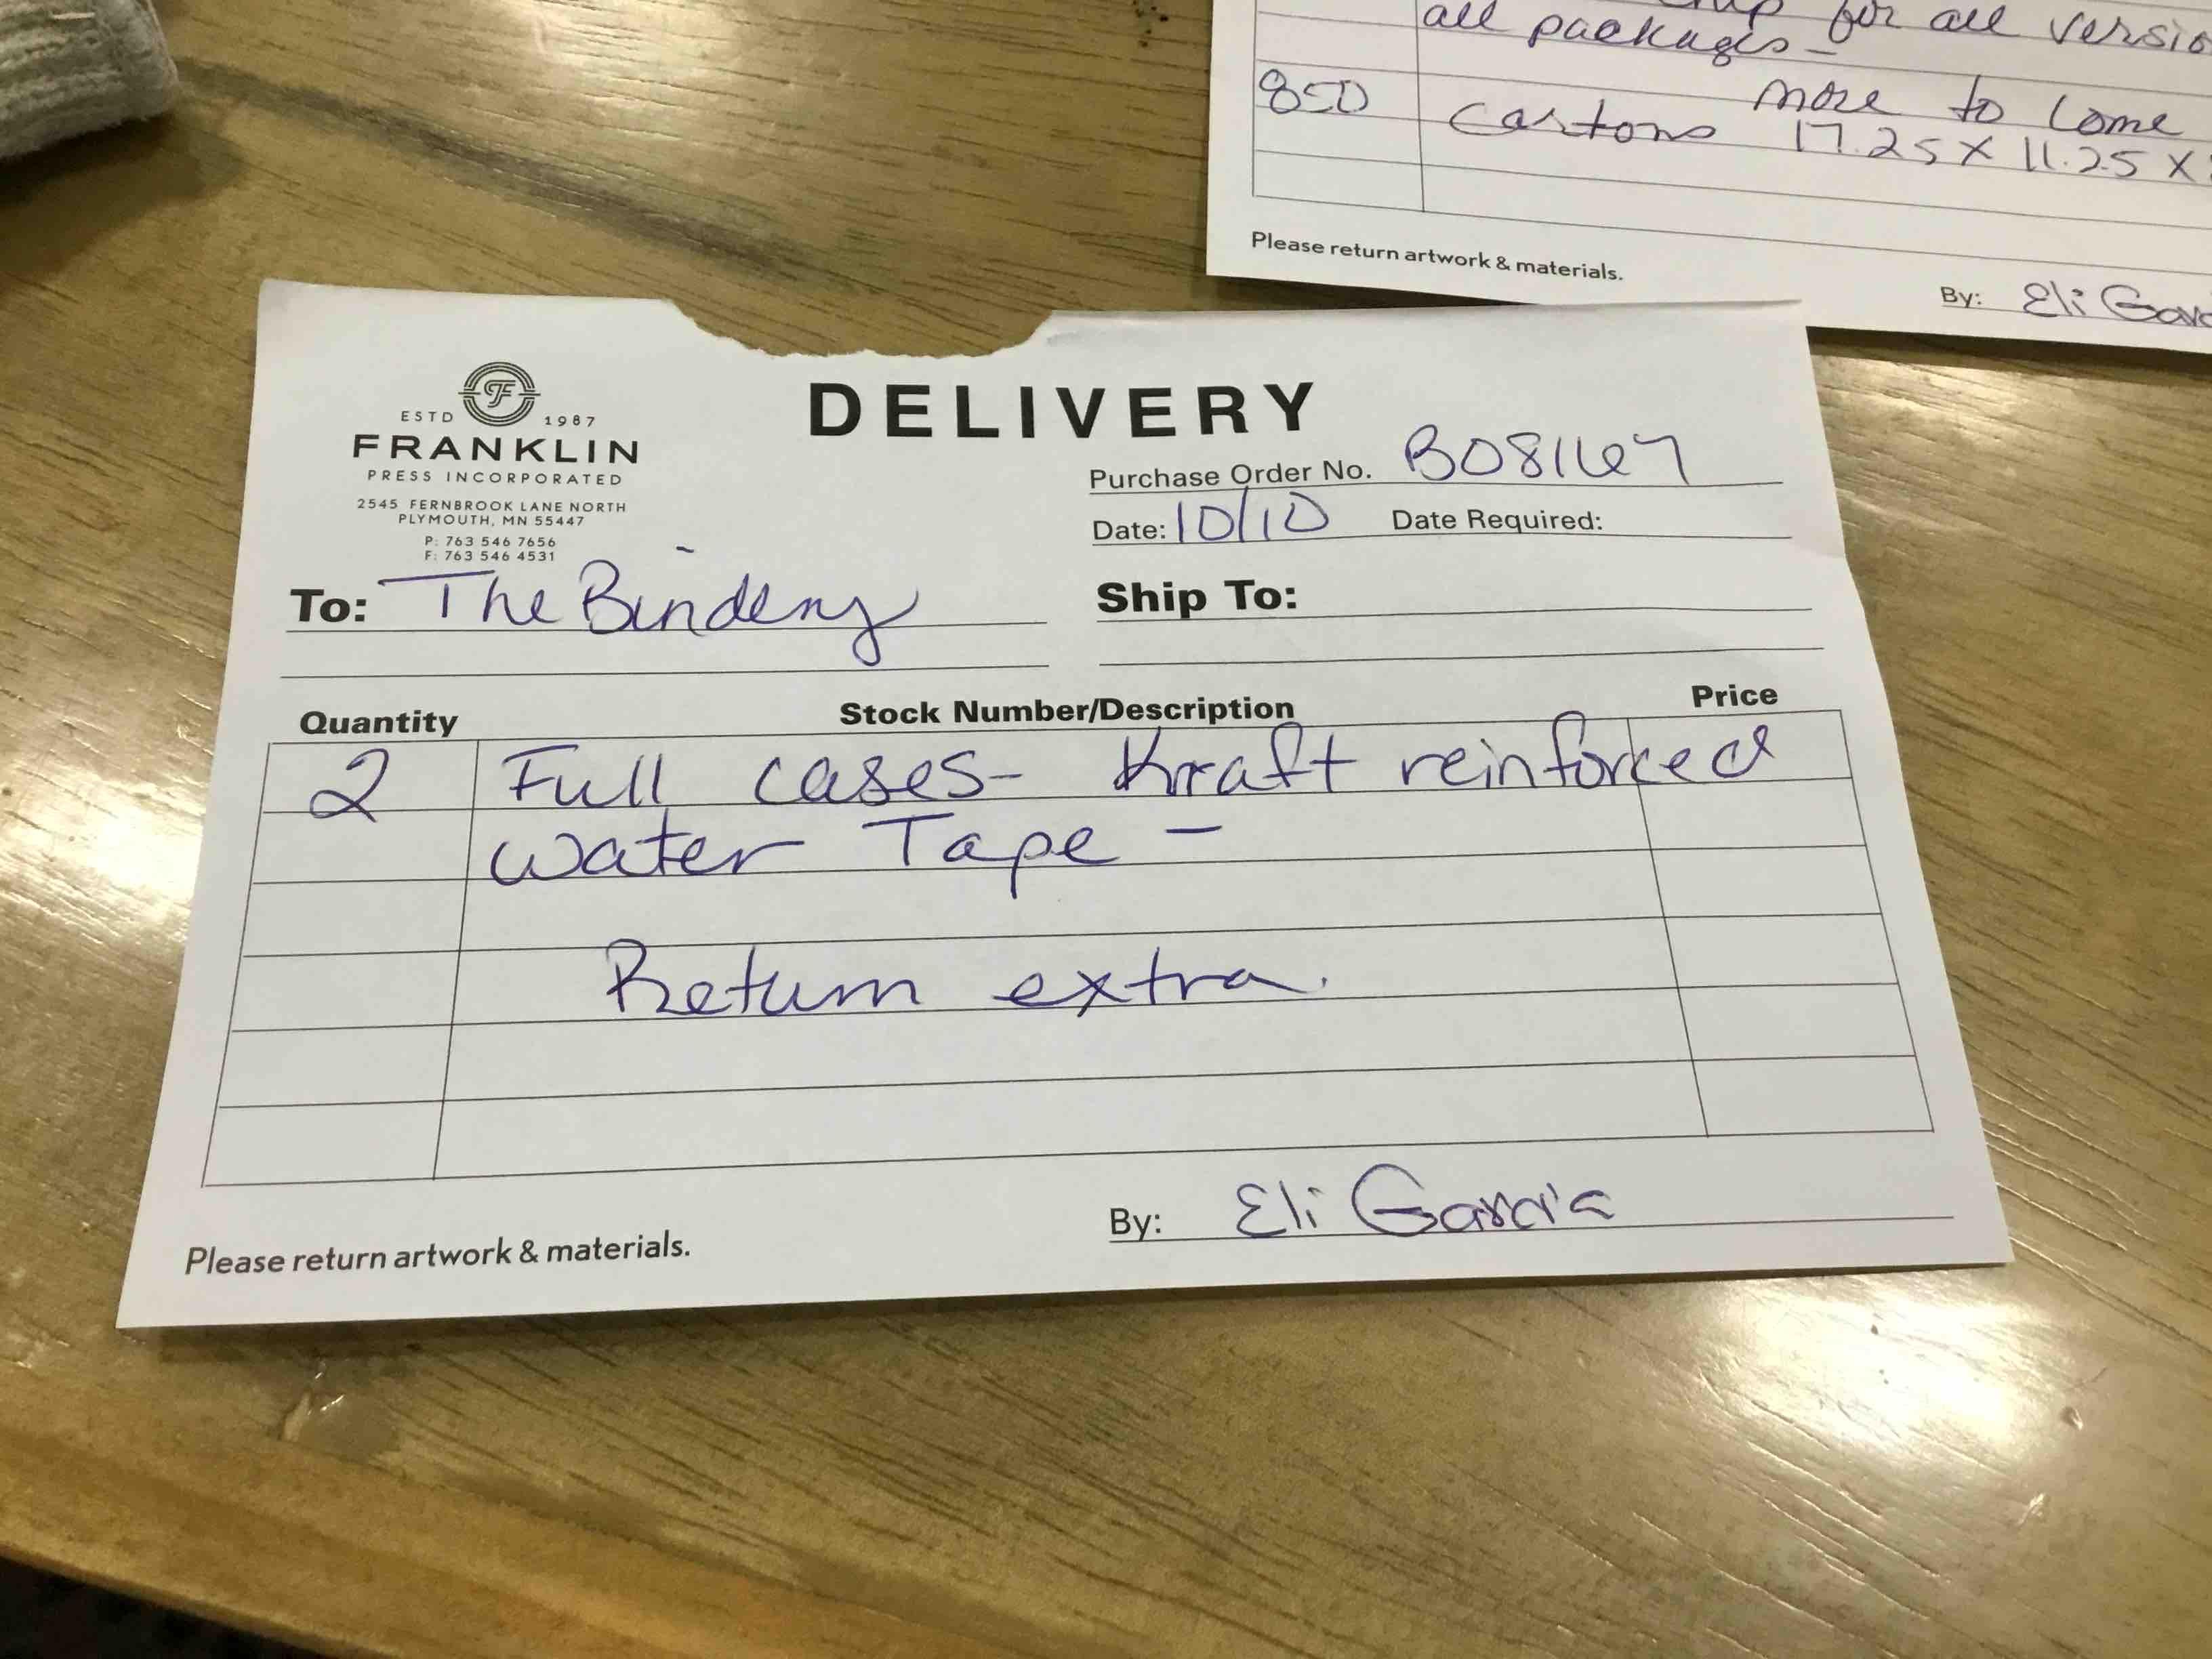 for all
all packages-
850
more to come
cartons 17.25 X 11.25 X
Please return artwork & materials.
By: Eli
F
ESTD 1987
FRANKLIN
PRESS INCORPORATED
2545 FERNBROOK LANE NORTH
PLYMOUTH, MN 55447
P: 763 546 7656
F: 763 546 4531
DELIVERY
Purchase Order No. B08167
Date: 10/10 Date Required:
To: The Bindery
Ship To:
Quantity Stock Number/Description Price
2 Full cases- Kraft reinforced
water Tape -
Return extra.
By: Eli Garcia
Please return artwork & materials.